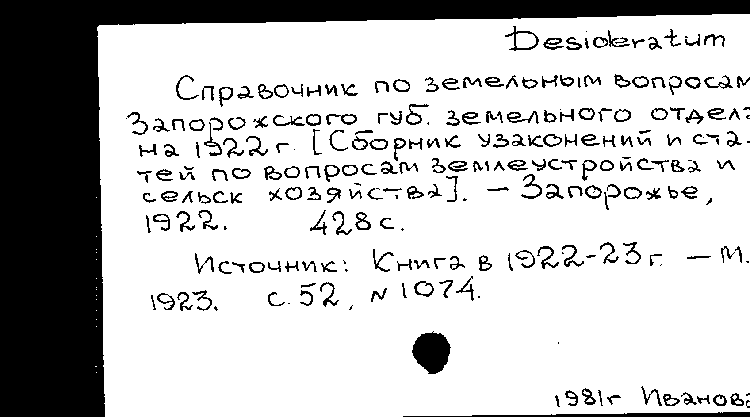 Desideratum
Справочник по земельным вопросам
Запорожского губ. земельного отдела
на 1922 г. [Сборник узаконений и ста-
тей по вопросам землеустройства и
сельск хозяйства]. – Запорожье,
1922. 428 с.
Источник: Книга в 1922-23 г. – М.
1923. с. 52, N 1074.
1981г Иванова